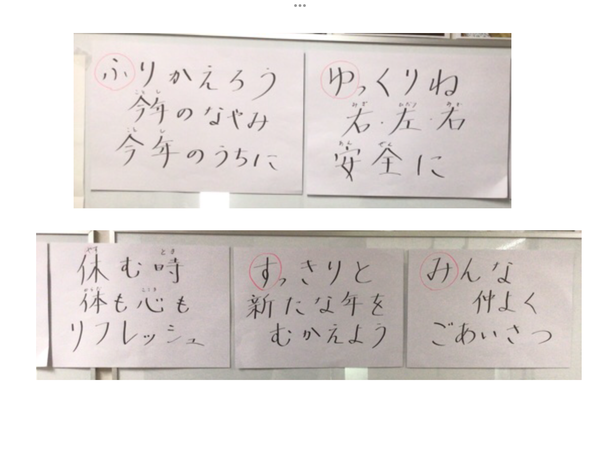 ふりかえろう
今年のなやみ
今年のうちに
ゆっくりね
右・左・右
安全に
休む時
体も心も
リフレッシュ
すっきりと
新たな年を
むかえよう
みんな
仲よく
ごあいさつ